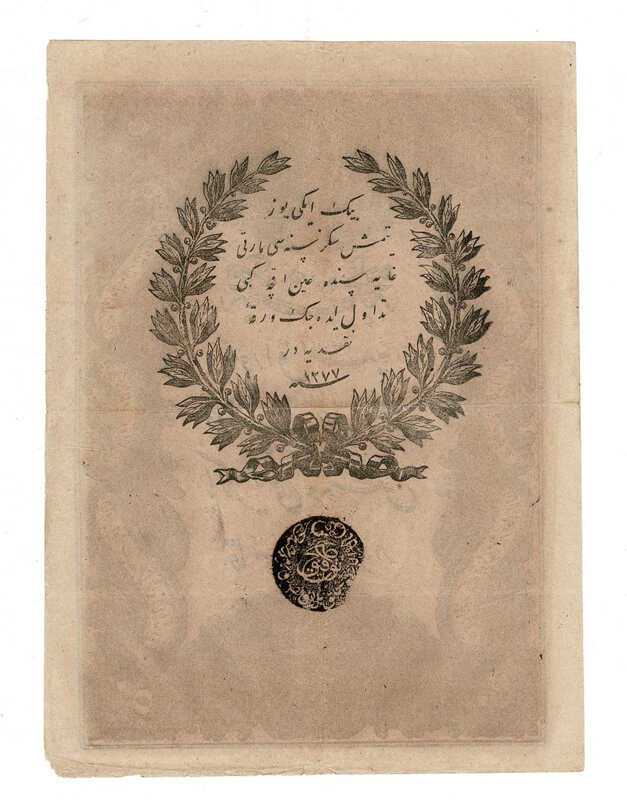 بيك ايكى يوز
يتمش سكز سنه سى مارتى
غايه سنده عين اقچه كبى
تداول ايده جك ورقۀ
نقديه در
سنه ١٢٧٧
توفيق